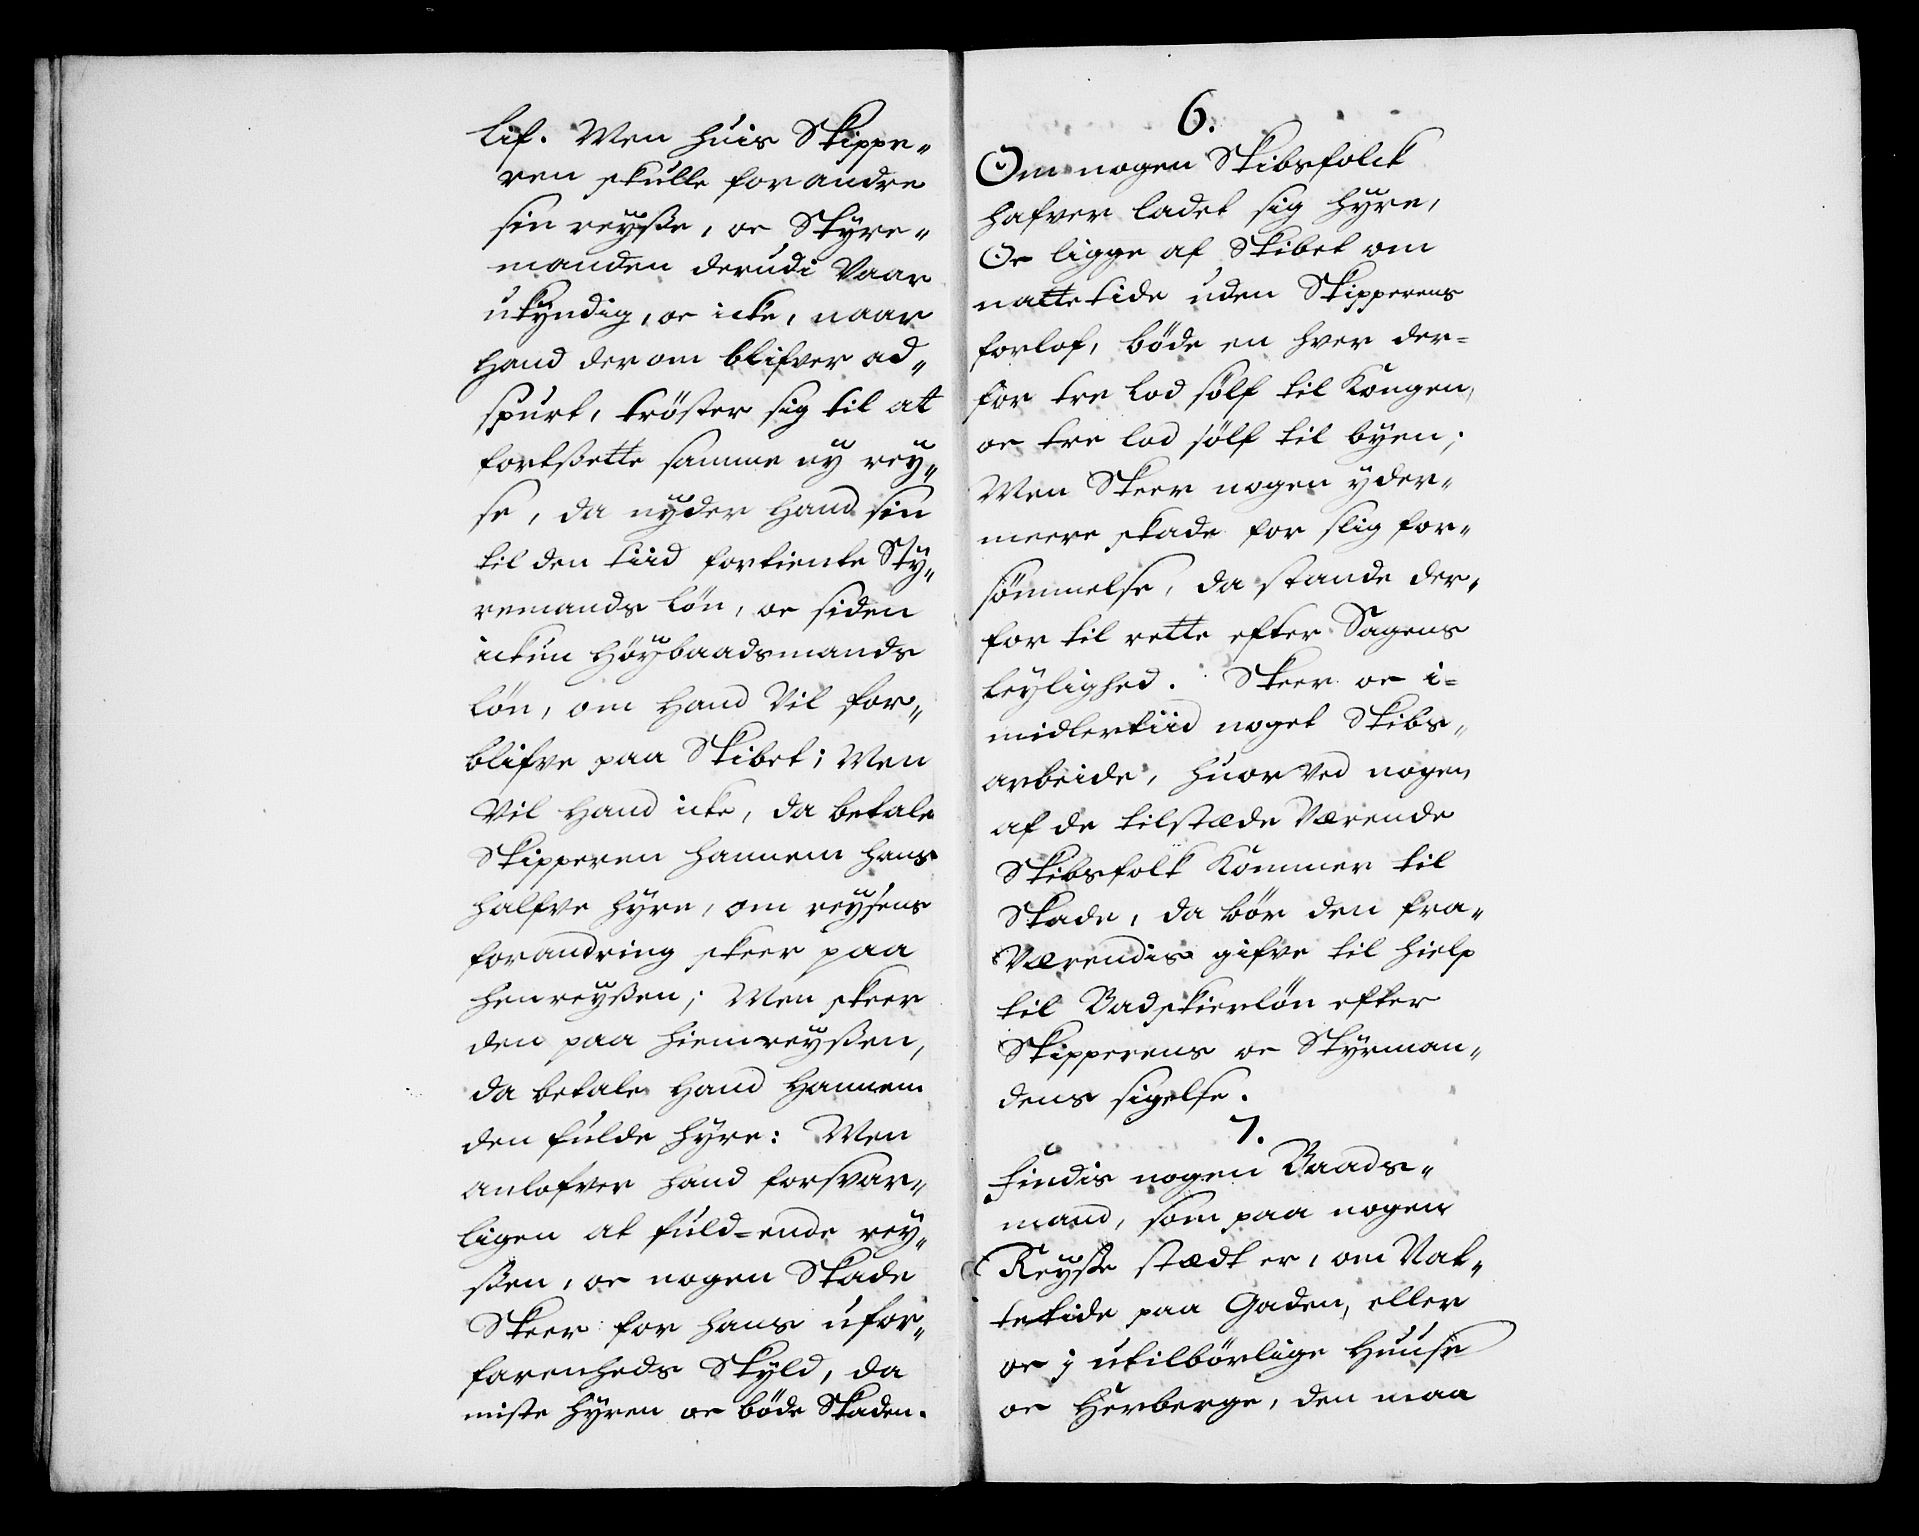 lif. Men huis Skippe„
ren skulle forandre
sin reyße, oc Styre„
manden derudi Vaar
ukyndig, oc icke, naar
hand derom blifver ad„
spurt, tröster sig til at
fortßette samme ny rey„
se, da nyder hand sin
til den tiid fortiente Sty„
remands løn, oc siden
ickun Höybaadsmands
løn, om hand Vil for„
blifve paa Skibet; Men
Vil hand icke, da betale
Skipperen hannem hans
halfve hyre, om reysens
forandring skeer paa
henreyßen; Men skeer
den paa hiemreyßen,
da betale hand hannem
den fulde hyre: Men
anlofver hand forsvar„
ligen at fuld=ende rey„
ßen, oc nogen Skade
Skeer for hans ufor„
farenheds Skyld, da
miste hyren oc böde Skaden.
6.
Om nogen Skibsfolck
hafver ladet sig hyre,
Oc ligge af Skibet om
nattetide uden Skipperens
forlof, böde en hver der=
for tre lod sölf til Kongen,
oc tre lod sölf til byen;
Men Skeer nogen yder„
meere skade for slig for„
sömmelse, da stande der„
for til rette efter Sagens
leylighed. Skeer oc i=
midlertiid noget Skibs„
arbeide, huor Ved nogen
af de tilstæde Værende
Skibsfolk Kommer til
Skade, da bör den fra„
Værendis gifve til hielp
til Badskierløn efter
Skipperens oc Styrman„
dens sigelse.
7.
Findis nogen Baads„
mand, som paa nogen
Reyße stædt er, om Nat„
tetide paa Gaden, eller
oc j utilbörlige Huuse
oc Herberge, den maa